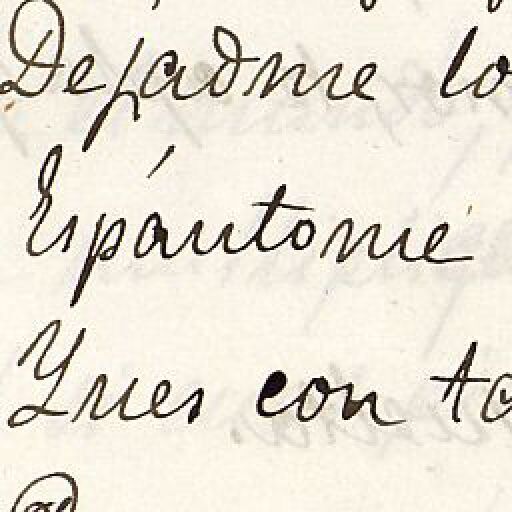 Dejadme lo
Espántome
Ynes con to